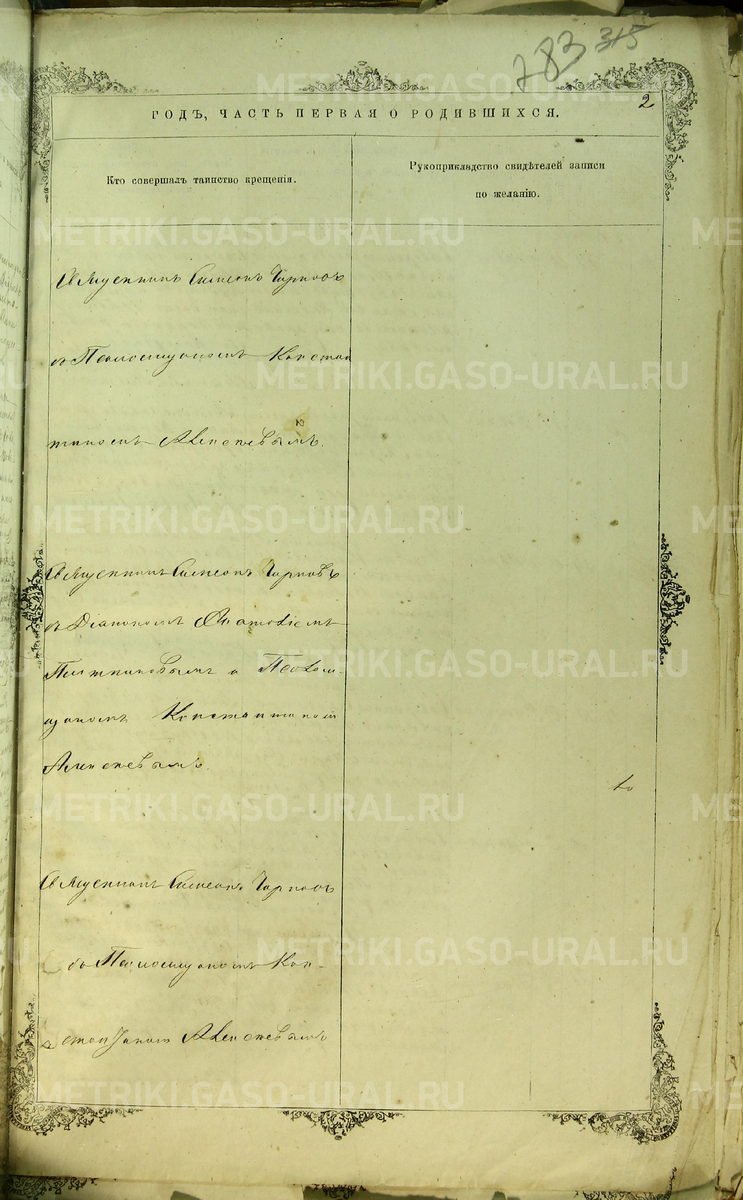 283 315
2
ГОДЪ, ЧАСТЬ ПЕРВАЯ О РОДИВШИХСЯ.
Кто совершалъ таинство крещенія.
Рукоприкладство свидѣтелей записи
по желанію.
Священникъ Симеонъ
съ Псаломщикомъ Констан
тиномъ Алексѣевымъ.
Священникъ Симеонъ
съ Діакономъ
Плотниковымъ и Псалом-
щикомъ Константиномъ
Алексѣевымъ.
Священникъ Симеонъ
съ Псаломщикомъ Кон-
Алексѣевымъ
METRIKI.GASO-URAL.RU